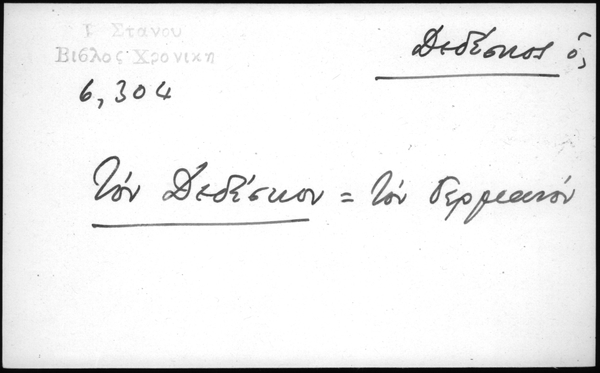 Ι Στανου
Βιβλος Χρονικη
Δεδέσκος ὁ,
6, 304
Τόν Δεδέσκον = τόν Γερμανόν